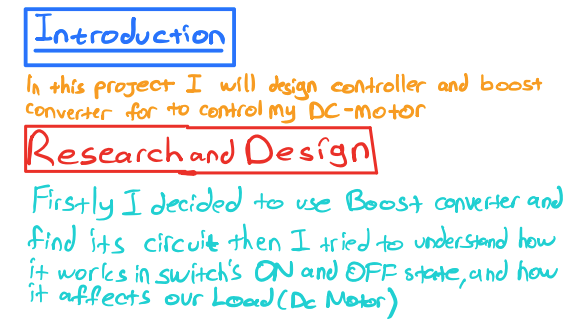 Introduction
In this project I will design controller and boost
converter for to control my DC-motor
Research and Design
Firstly I decided to use Boost converter and
find its circuit then I tried to understand how
it works in switch's ON and OFF state, and how
it affects our Load (Dc Motor)